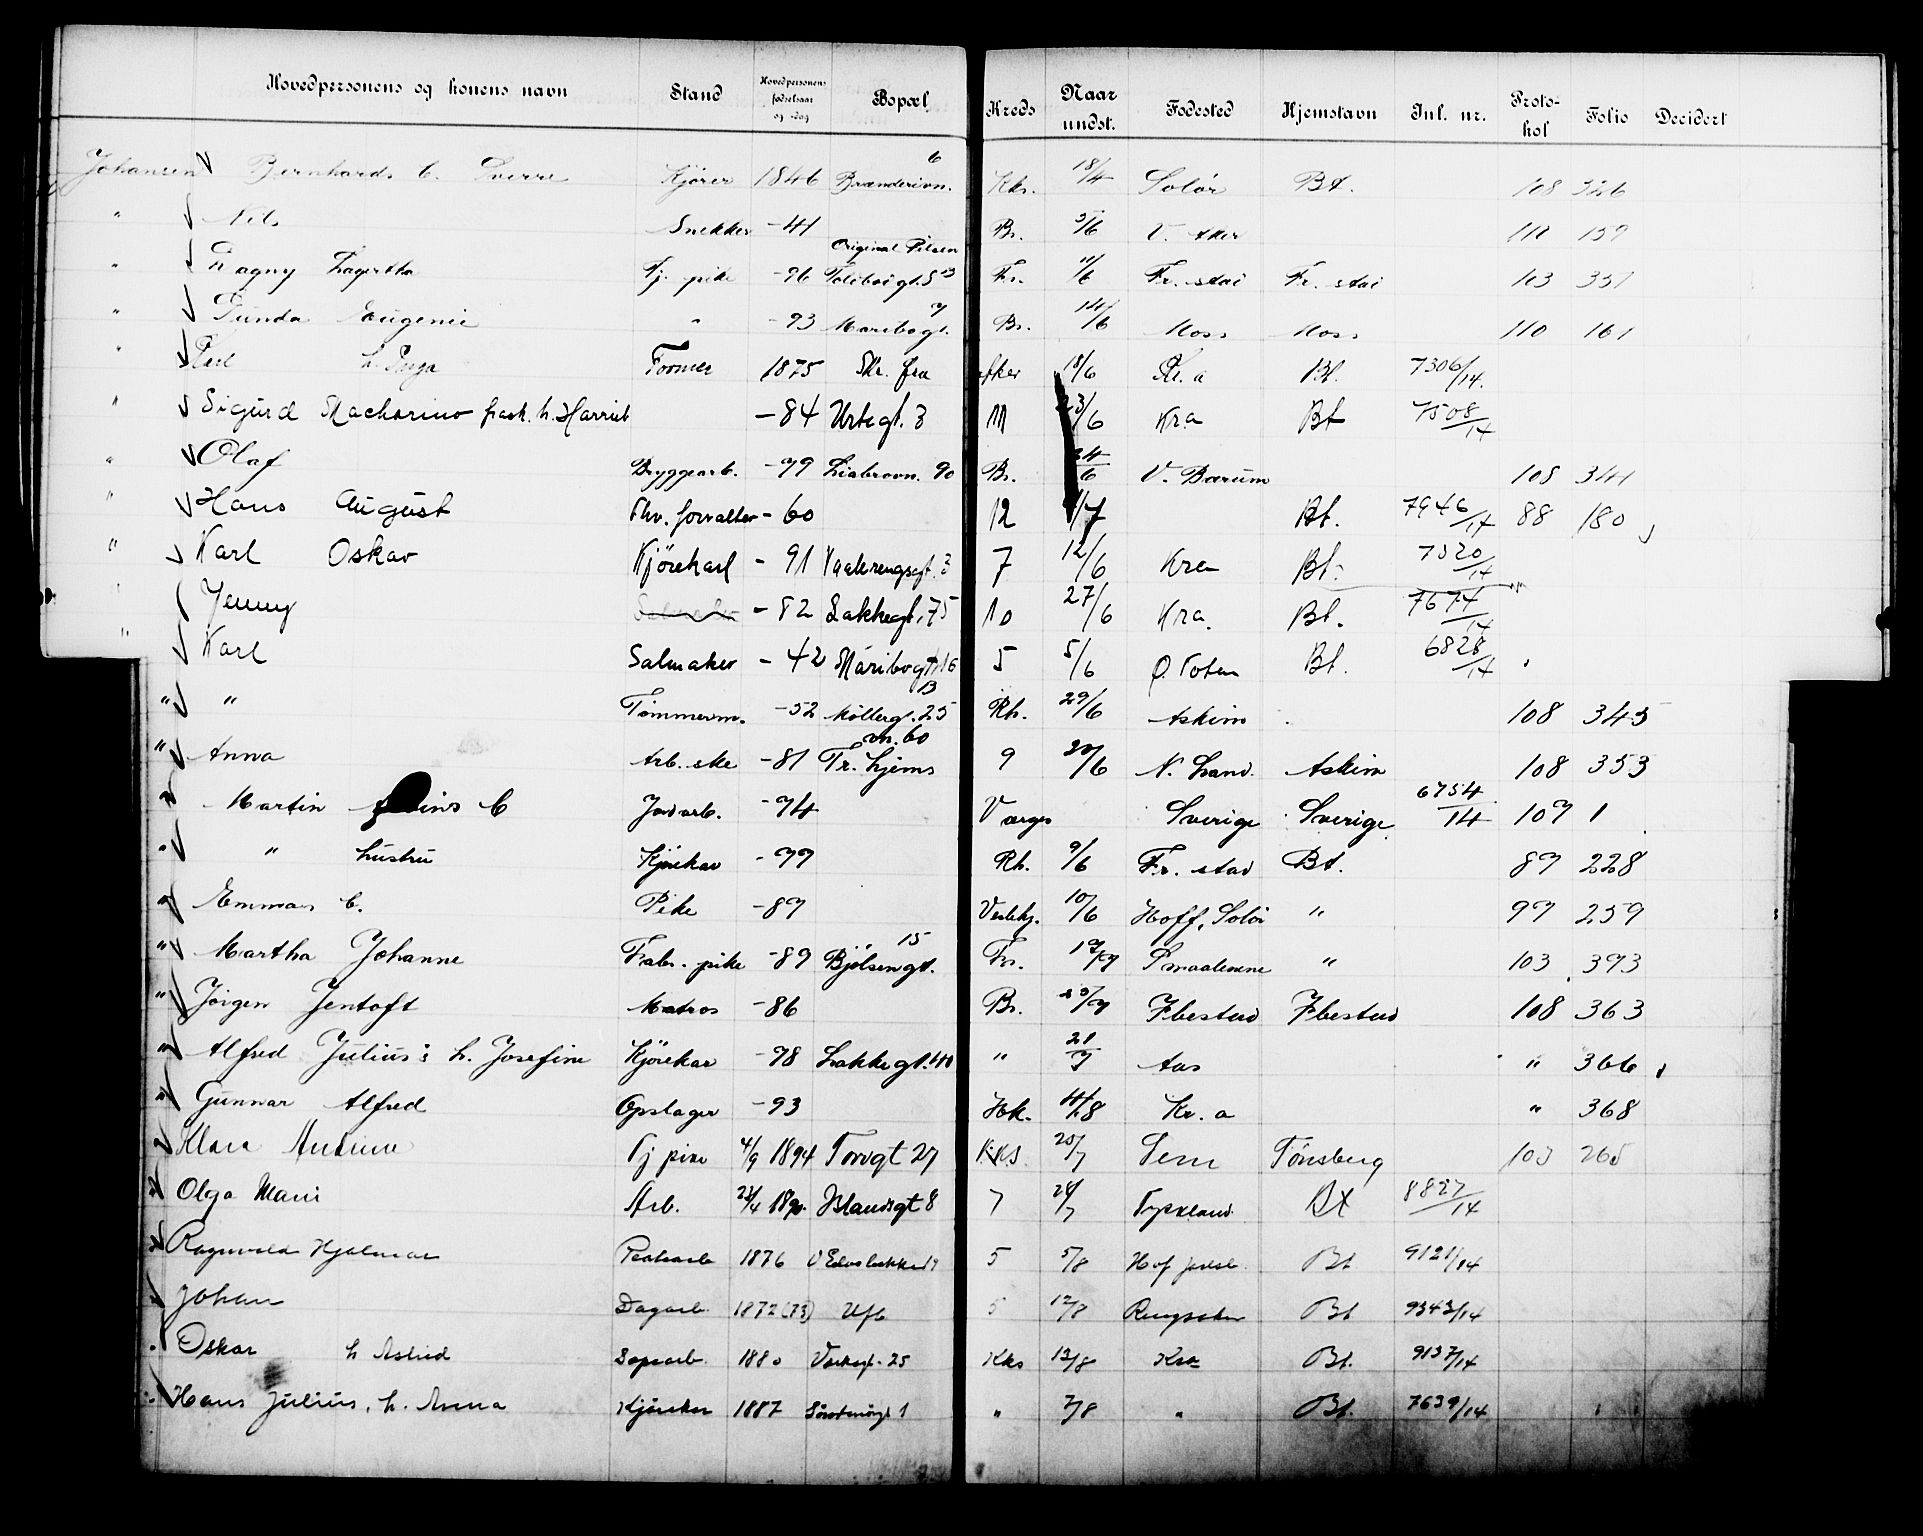 Hovedpersonens og konens navn Stand Hovedpersonens fødselsaar og -dag Bopæl Kreds Naar undst. Fødested Hjemstavn Jnl. nr. Proto-kol Folio Decidert
Johansen Bernhard C. Sverre Kjører 1846 Brænderivn. 6 Kks. 18/4 Solør Bt. 108 326
" Nils Snekker -41 Br. 3/6 V. Aker 110 159
" Dagny Lagertha Tj. pike -96 Original Pilsen Toldbodgt. 8 Fr. 11/6 Fr. stad Fr. stad 103 351
" Eugenie " -93 Maribogt. 7 Br. 14/6 Moss Moss 110 161
" Karl h. Inga Former 1875 Kr. fra Aker 18/6 Kr.a Bt. 7306/14.
" Sigurd frask. h. Harriet -84 Urtegt. 3 M 23/6 Kra Bt 7508/14
" Olaf Bryggearb. -79 Liabrovn. 90 Br. 24/6 V. Bærum 108 341
" Hans August forvalter -60 12 1/7 Bt. 7946/14 88 180
" Karl Oskar Kjørekarl -91 Vaalerengagt. 3 7 12/6 Kra Bt. 7320/14
" Jenny -82 Lakkegt. 75 10 27/6 Kra. Bt. 7674/14
" Karl Salmaker -42 Maribogt. 16 5 5/6 Ø. Toten Bt. 6828/14
" " Tømmerm. -52 Møllergt. 25 B Rh. 29/6 Askim 108 345
" Anna Arb. ske -81 Fr. hjems vn. 60 9 20/6 N. Land. Askim 108 353
" Martin C Jordarb. -74 Værges Sverige Sverige 6754/14 107 1
" " Kjørekar -77 Rh. 9/6 Fr. stad Bt. 87 228
" Emma C. Pike -87 Vestehj. 10/6 Hoff, Solør " 97 259
" Martha Johanne Fabr. pike -89 Bjølsengt. 15 Fr. 17/7 Smaalenene " 103 393
" Jørgen Jentoft Matros -86 Br. 20/7 Ibestad Ibestad 108 363
" Alfred Julius: h. Josefine Kjørekar -78 Lakkegt. 40 " 21/7 Aas " 366
" Gunnar Alfred Opslager -93 Hk. 4/8 Kr.a " 368
" Klara Antine Tj pike 4/9 1894 Torvgt 27 KKS. 20/7 Sem Tønsberg 103 265
" Olga Marie Arb. 1890. Islandsgt 8 7 24/7 Tyskland Bt 8827/14
" Ragnvald Hjalmar 1876 5 5/8 Hof Jarlsb. Bt 9121/14
" Johan Dagarb. 1872 (73) Ufb 5 12/8 Ringsaker Bt 9343/14
" Oskar h Astrid 1880 25 Kks 13/8 Kra Bt. 9137/14
" Hans Julius, h. Anna Kjørekar 1887 " 7/8 " Bt. 7639/14